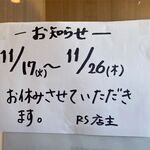 ーお知らせー
11/17(火)〜11/26(木)
お休みさせていただき
ます。 RS.店主